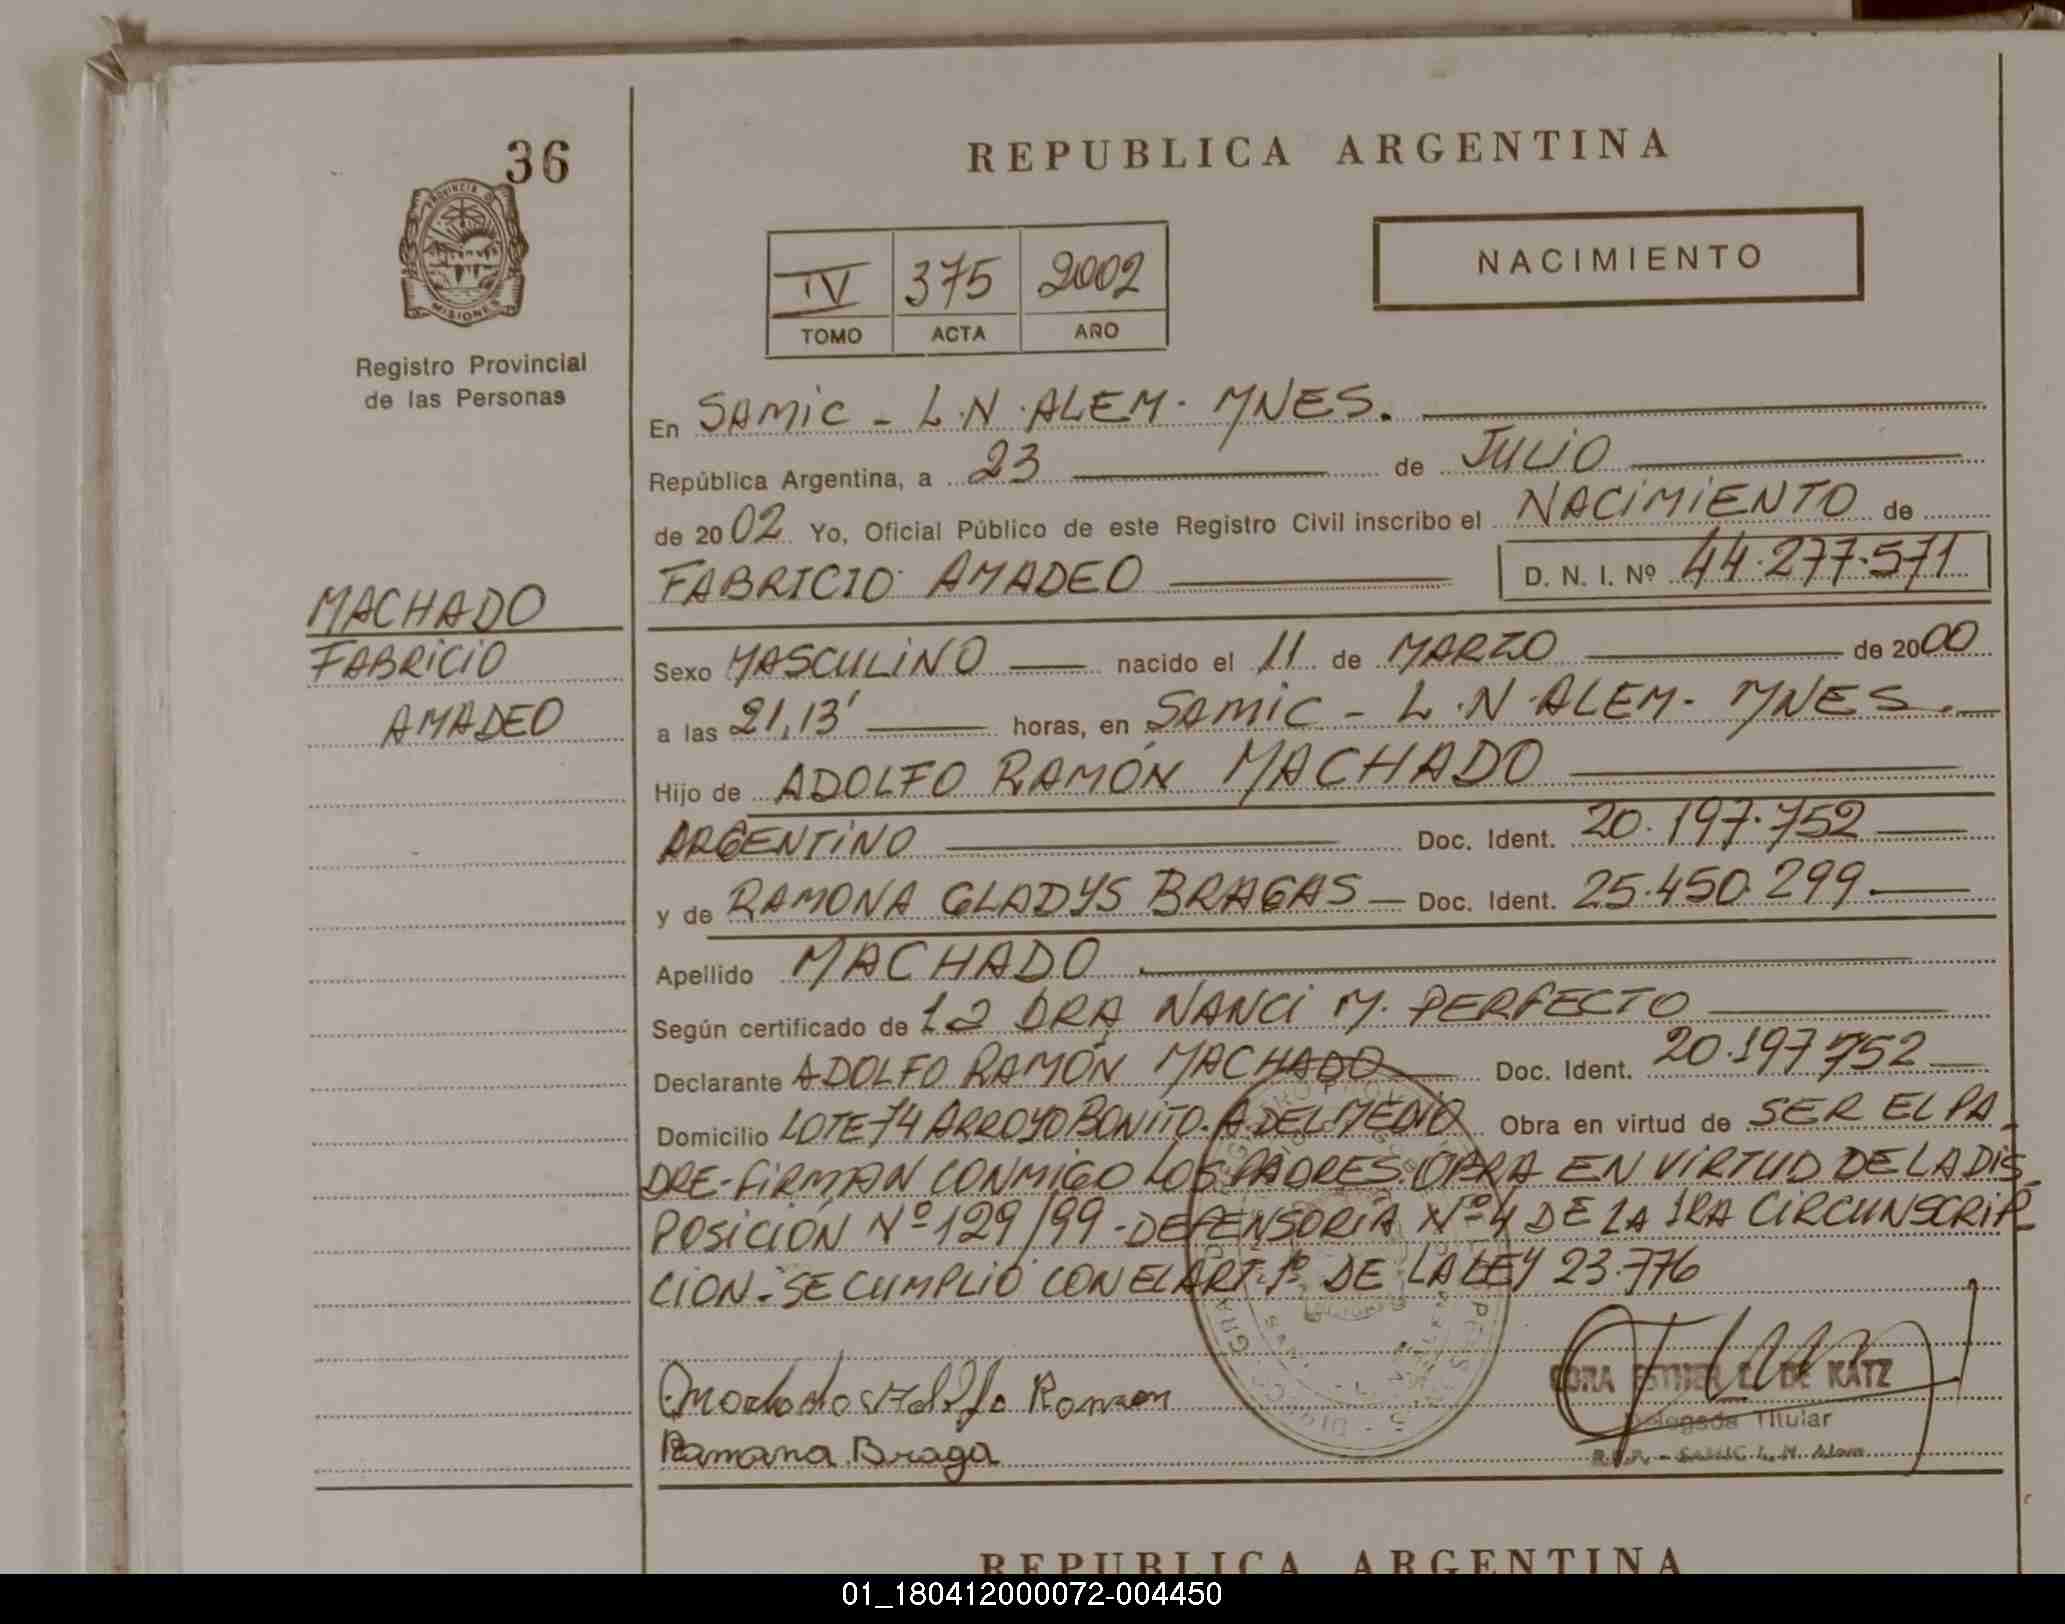 36
REPUBLICA ARGENTINA
PROVINCIA DE
MISIONES
Registro Provincial
de las Personas
IV 375 2002
TOMO ACTA AÑO
NACIMIENTO
En SAMIC - L.N. ALEM - MNES.
República Argentina, a 23 de JULIO
de 2002 Yo, Oficial Público de este Registro Civil inscribo el NACIMIENTO de
FABRICIO AMADEO D. N. I. Nº 44.277.571
MACHADO
FABRICIO
AMADEO
Sexo MASCULINO nacido el 11 de MARZO de 2000
a las 21,13' horas, en SAMIC - L.N. ALEM - MNES.
Hijo de ADOLFO RAMÓN MACHADO
ARGENTINO Doc. Ident. 20.197.752
y de RAMONA GLADYS BRAGAS Doc. Ident. 25.450.299
Apellido MACHADO
Según certificado de la DRA NANCI M. PERFECTO
Declarante ADOLFO RAMÓN MACHADO Doc. Ident. 20.197.752
Domicilio LOTE 74 ARROYO BONITO. A. DEL MEDIO Obra en virtud de SER EL PA-
DRE - FIRMAN CONMIGO LOS PADRES. OBRA EN VIRTUD DE LA DIS-
POSICIÓN Nº 129/99 - DEFENSORÍA Nº 4 DE LA 1RA CIRCUNSCRIP-
CION - SE CUMPLIÓ CON EL ART. 1º DE LA LEY 23.776
Machado Adolfo Ramon
Ramona Braga
CORA ESTHER E. DE KATZ
Delegada Titular
R.P.P. - SAMIC L. N. Alem
REPUBLICA ARGENTINA
01_180412000072-004450